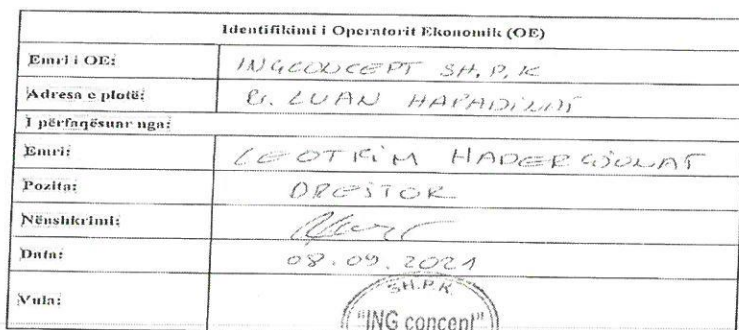 Identifikimi i Operatorit Ekonomik (OE)
Emri i OE: INGCONCEPT SH.P.K
Adresa e plotë: LUAN
I përfaqësuar nga:
Emri: LEOTRIM
Pozita: DREJTOR
Nënshkrimi:
Data: 08.09.2021
Vula:
SH.P.K.
"ING concept"